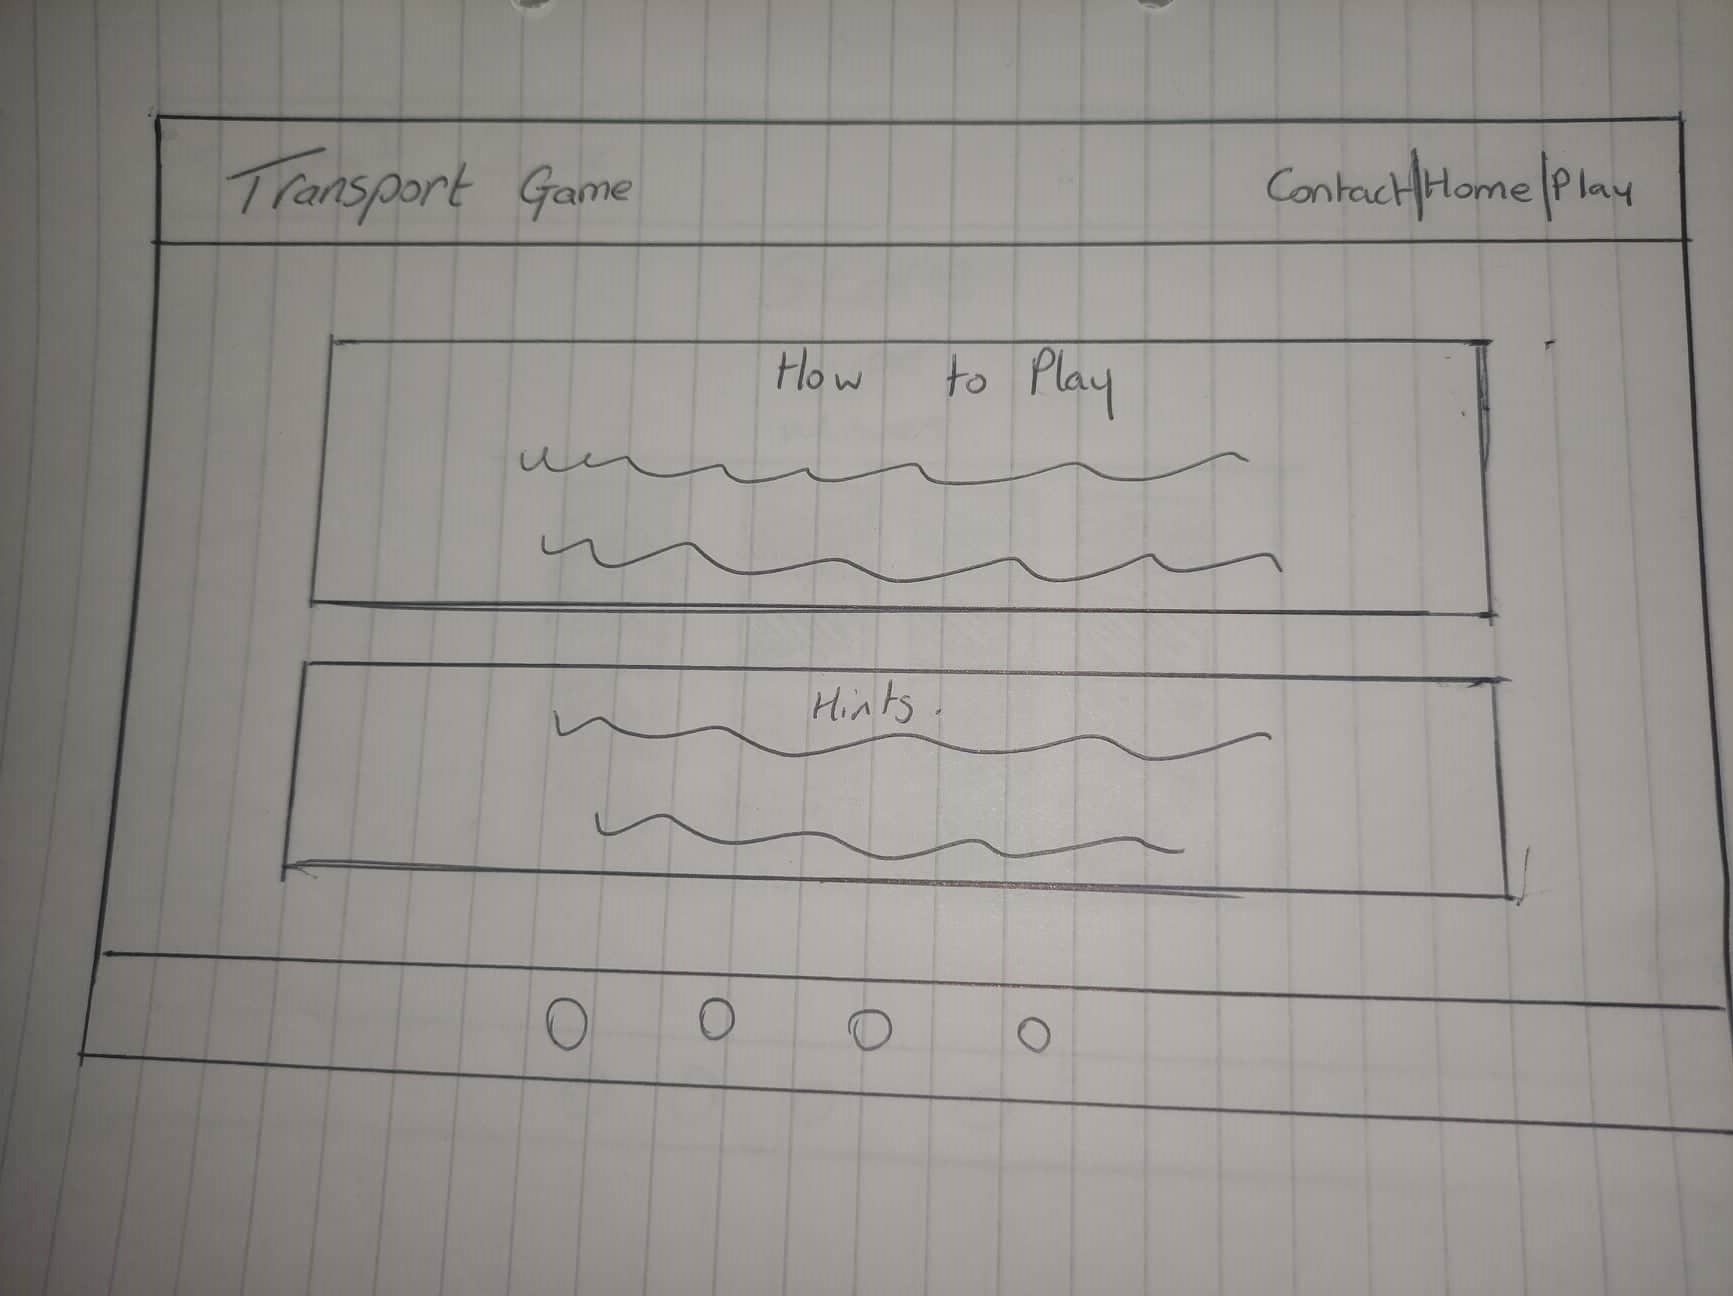 Transport Game
Contact|Home|Play
How to Play
Hints.